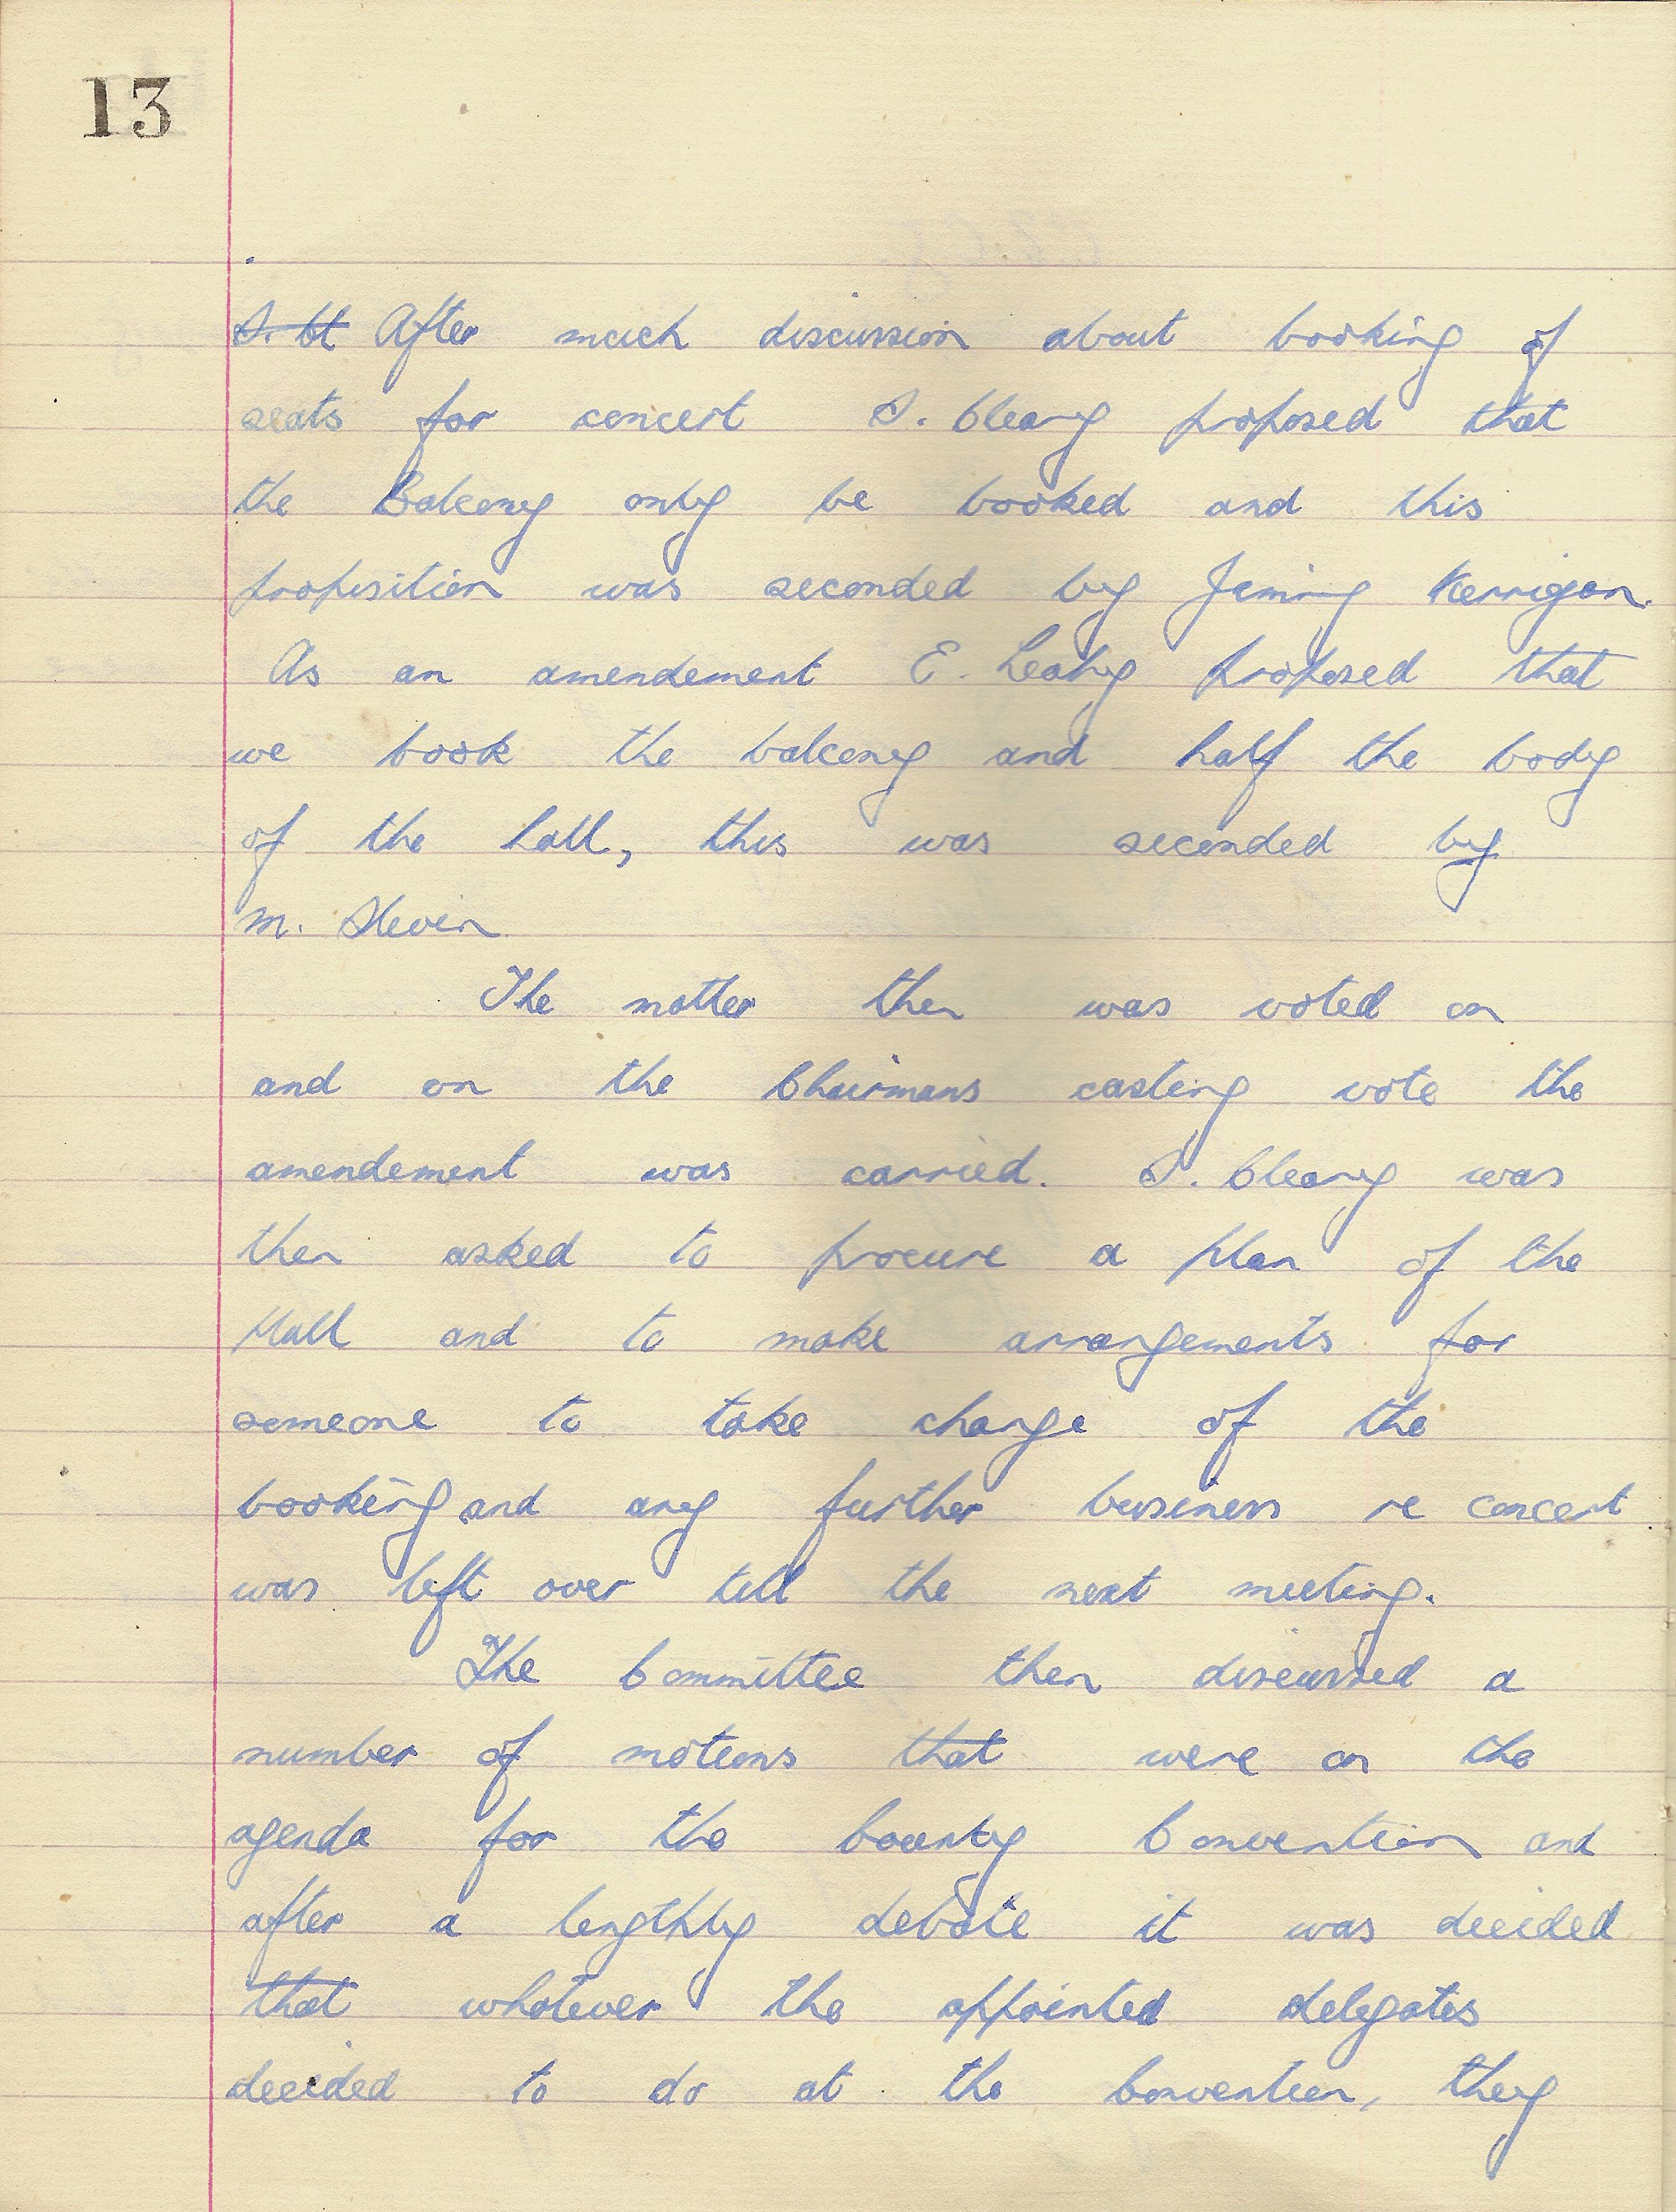 13
S. Cl After much discussion about booking of
seats for concert S. Cleary proposed that
the Balcony only be booked and this
proposition was seconded by Jimmy Kerrigan.
As an amendement E. Leahy proposed that
we book the balcony and half the body
of the hall, this was seconded by
M. Slevin
The matter then was voted on
and on the Chairmans casting vote the
amendement was carried. S. Cleary was
then asked to procure a plan of the
Hall and to make arrangements for
someone to take charge of the
booking and any further business re concert
was left over till the next meeting.
The Committee then discussed a
number of motions that were on the
agenda for the County Convention and
after a lengthly debate it was decided
that whatever the appointed delegates
decided to do at the Convention, they